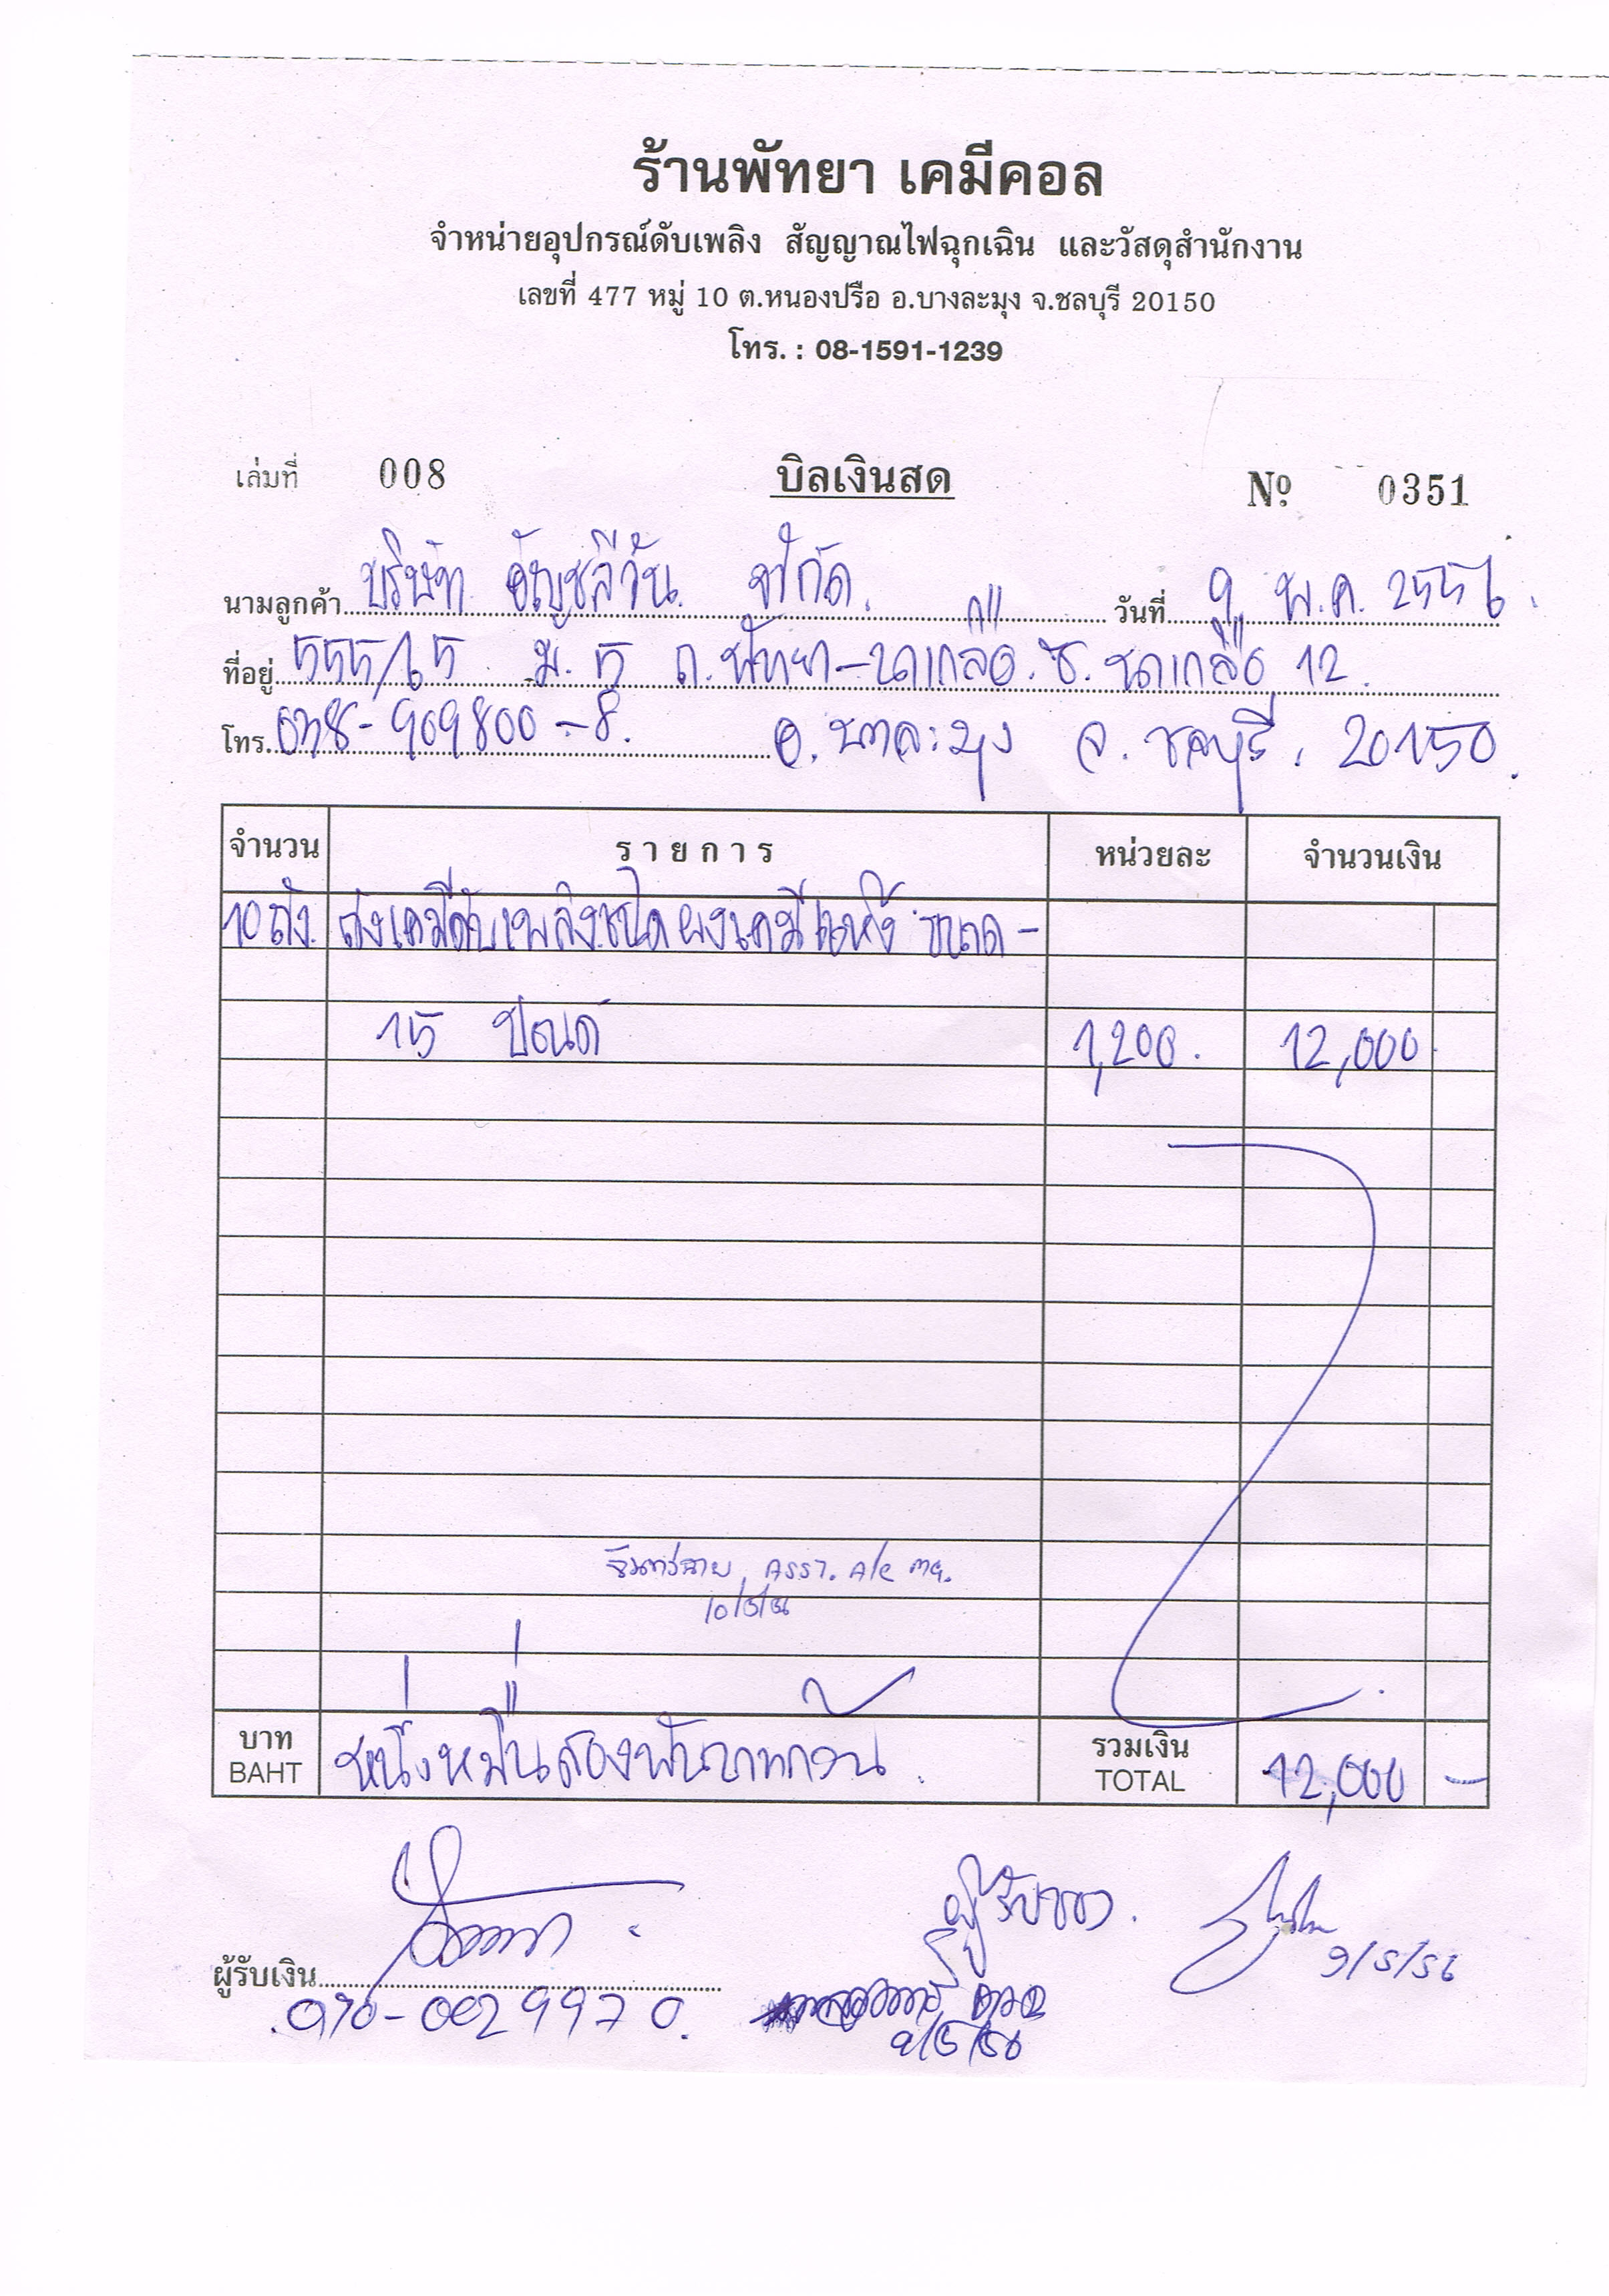 ร้านพัทยา เคมีคอล
จำหน่ายอุปกรณ์ดับเพลิง สัญญาณไฟฉุกเฉิน และวัสดุสำนักงาน
เลขที่ 477 หมู่ 10 ต.หนองปรือ อ.บางละมุง จ.ชลบุรี 20150
โทร. : 08-1591-1239
เล่มที่ 008 บิลเงินสด Nº 0351
นามลูกค้า บริษัท อัญชลีวัน จำกัด. วันที่ 9 พ.ค. 2556.
ที่อยู่ 555/65 ม. 5 ถ.พัทยา-นาเกลือ. ซ. นาเกลือ 12.
โทร. 038-909800-8. อ. บางละมุง จ. ชลบุรี. 20150.
จำนวน รายการ หน่วยละ จำนวนเงิน
10 ถัง. ถังเคมีดับเพลิงชนิด ผงเคมีแห้ง ขนาด -
15 ปอนด์ 1,200. 12,000.
ASST. A/C
10/5/56
บาท หนึ่งหมื่นสองพันบาทถ้วน. รวมเงิน 12,000 -
BAHT TOTAL
ผู้รับของ.
9/5/56
ผู้รับเงิน
090-0029970.
9/5/56